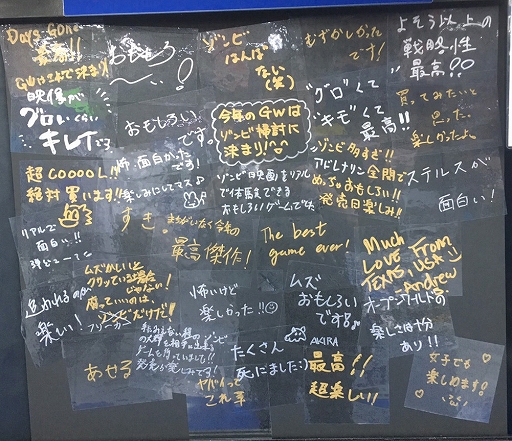 Days Gone
最高!!
GWはこれで決まり!
おもしろ
ゾンビ
はんぱ
ない
(笑)
むずかしかった
です!
よそう以上の
戦略性
最高!!
映像が
グロいくらい
キレイだろ
おもしろい
です。
今年のGWは
ゾンビ掃討に
決まり!
"グロ"くて
"キモ"くて
最高!!
買ってみたいと
思った。
楽しかったよ。
超COOOOL!!
絶対買います!!
怖面白かった
です!
楽しみにしてマス♪
ゾンビ映画をリアル
で体験できる
おもしろいゲームでした
ゾンビ多すぎ!!
アドレナリン全開で
めっちゃおもしろい!!
発売日楽しみ!!
ステルスが
面白い!
リアルで
面白い!!
すき。
まちがいなく今年の
最高傑作!
The best
game ever!
Much
Love From
TEXAS, USA
-Andrew
追われるのが
楽しい!
ムズかしいと
クリっている場合
じゃない!
腐っていいのは、
フリーカー
だけだ!
怖いけど
楽しかった!!
ムズ
おもしろい
です!
AKIRA
オープンワールドの
楽しさは十分
あり!!
あせる
発売が楽しみです!
ヤバイって
これ幸
たくさん
死にました:)
最高!!
超楽しい!!
女子でも
楽しめます!